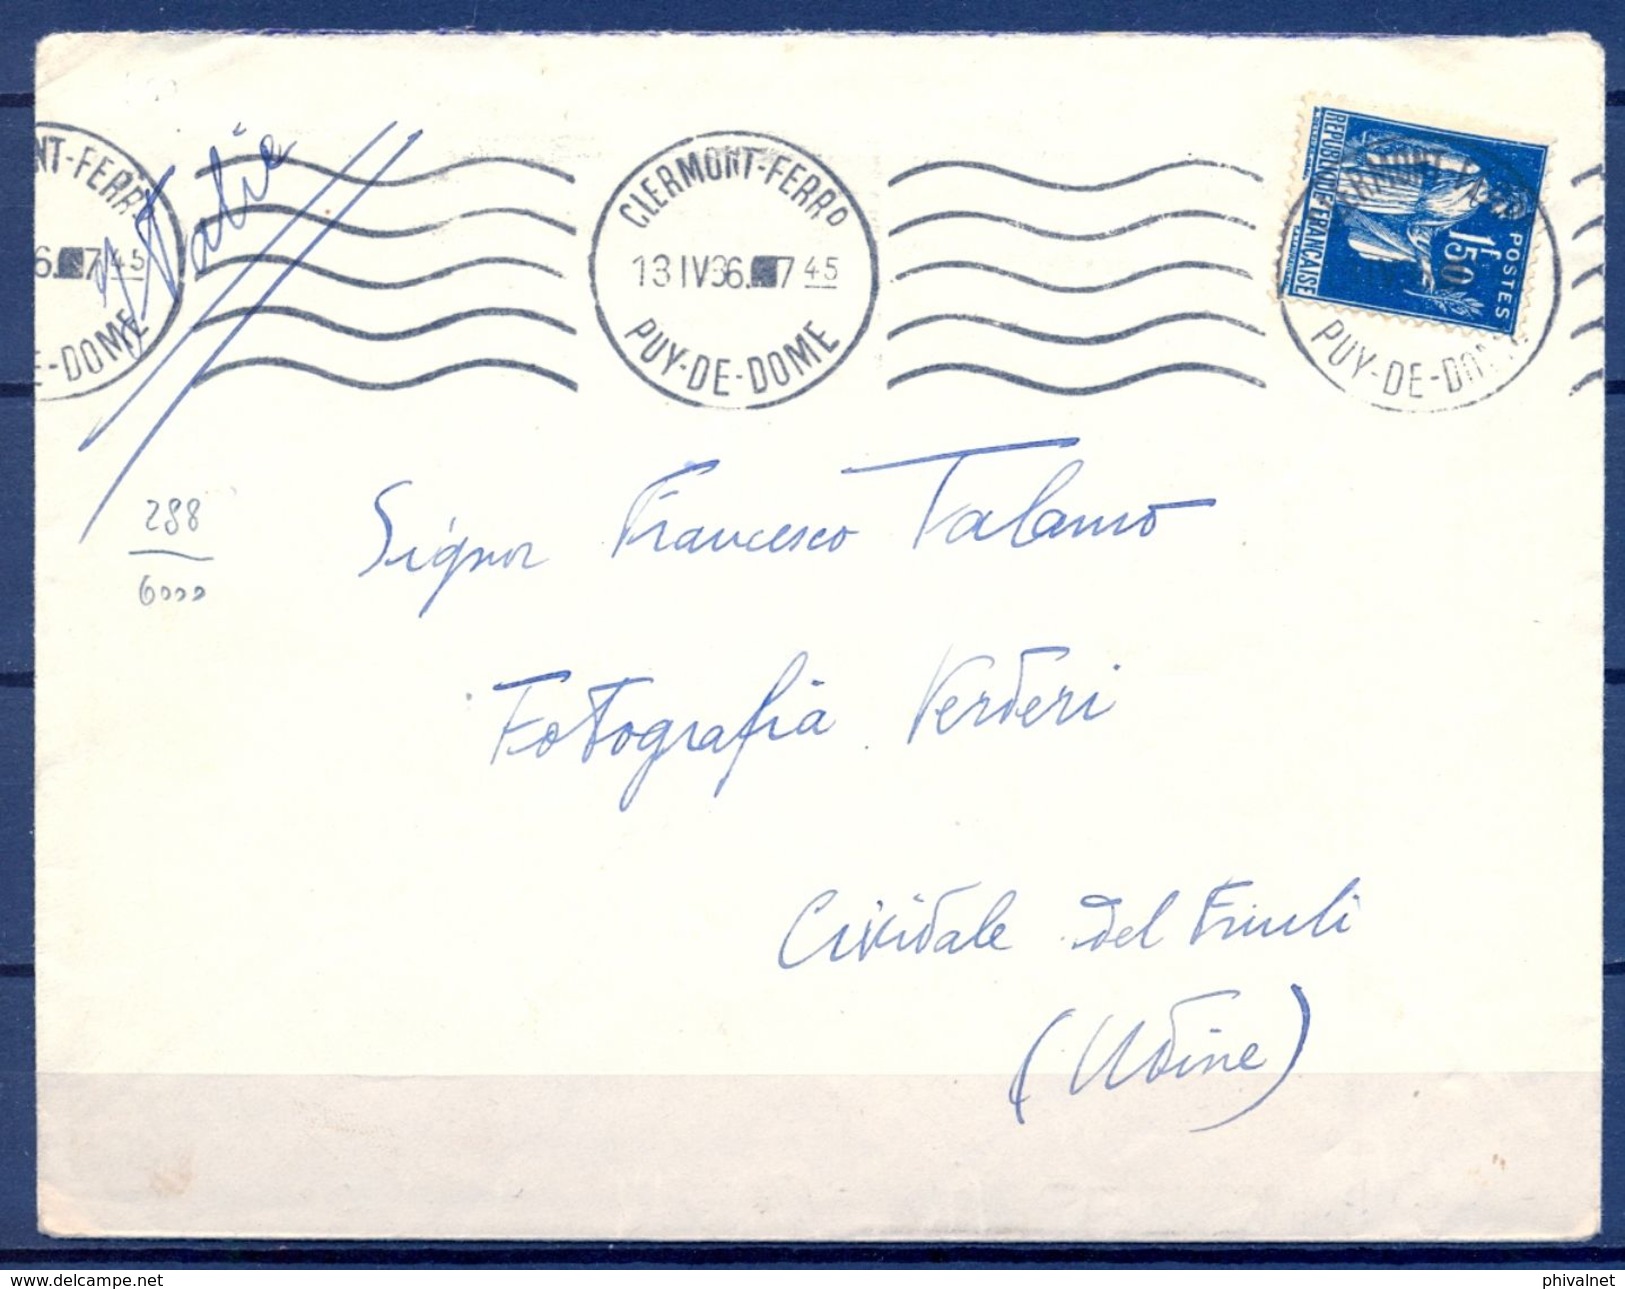 NT-FERR
6. 7 45
E-DOME
Italie
CLERMONT-FERRD
13 IV36. 7 45
PUY-DE-DOME
REPUBLIQUE FRANÇAISE
POSTES
1f.50
PUY-DE-DOM
288
6000
Signor Francesco Talamo
Fotografia Verderi
Cividale del Friuli
(Udine)
delcampe.net
phivalnet